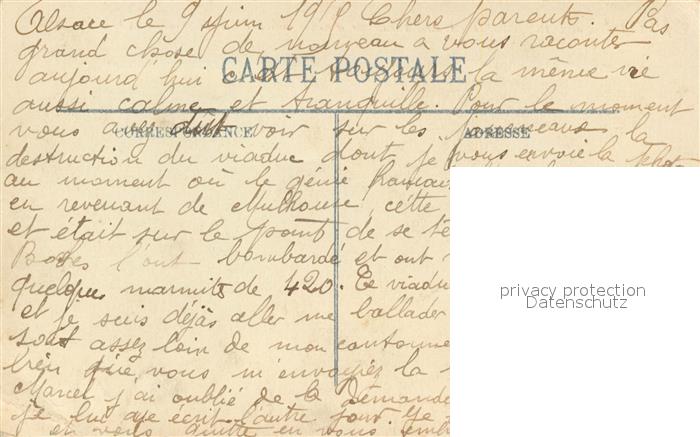 Alsace le 9 juin 1915 Chers parents. Pas
grand chose de nouveau a vous raconter
CARTE POSTALE
aujourd'hui c'est toujours la même vie
aussi calme et tranquille. Pour le moment
CORRESPONDANCE
ADRESSE
vous avez dût voir sur les journeaux la
destruction du viaduc dont je vous envoie la photo
au moment où le génie français
en revenant de Mulhouse, cette
et était sur le point de se
Boches l'ont bombardé et ont
quelques marmites de 420. Ce viaduc
et je suis déjàs aller me ballader
sont assez loin de mon cantonne
bien que vous m'envoyiez la
Marcel j'ai oublié de la demande
je lui aie écrit l'autre jour. Je
et en vous
privacy protection
Datenschutz